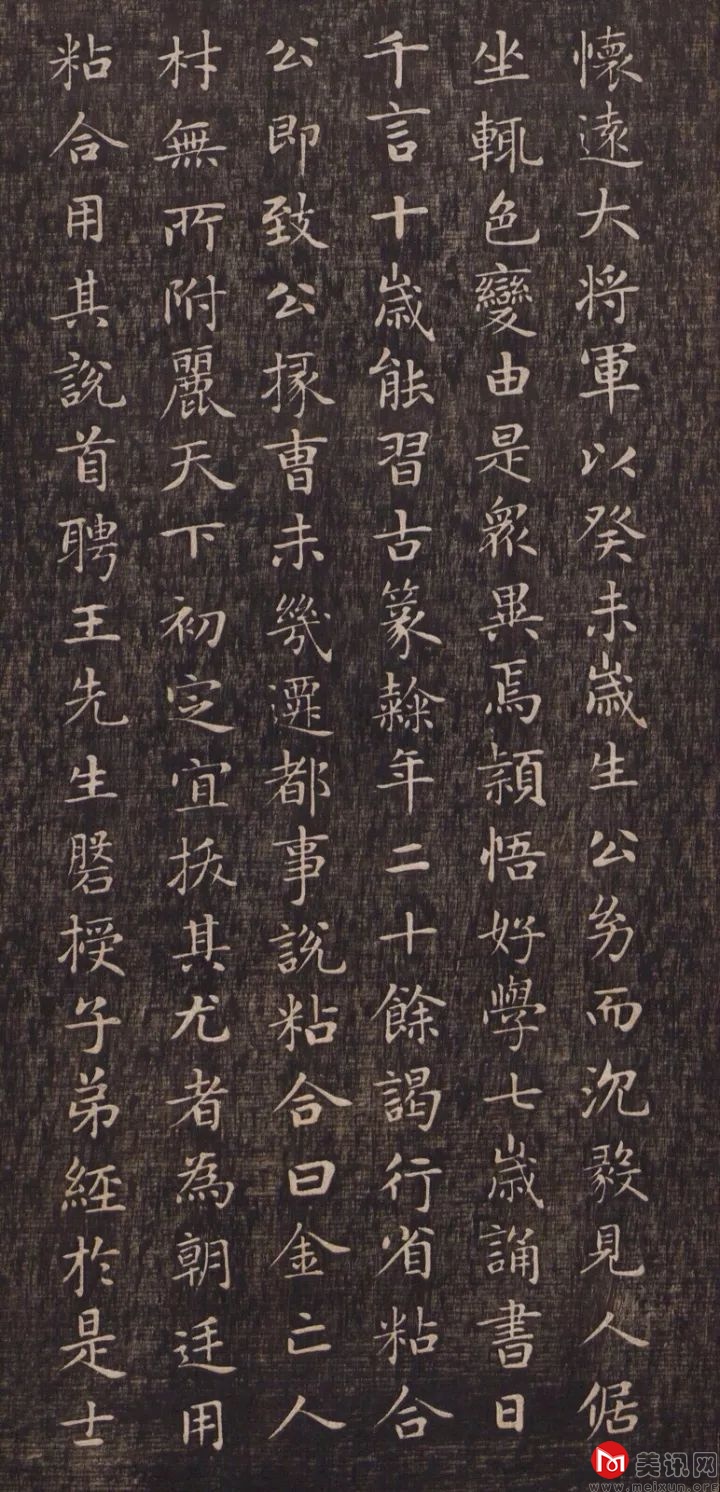 懷遠大将軍以癸未歲生公㓜而沉毅見人倨
坐輒色變由是衆異焉穎悟好學七歲誦書日
千言十歲能習古篆隸年二十餘謁行省粘合
公即致公掾曹未幾遷都事說粘合曰金亡人
材無所附麗天下初定宜拔其尤者為朝廷用
粘合用其說首聘王先生磐授子弟經於是士
美讯网
www.meixun.org